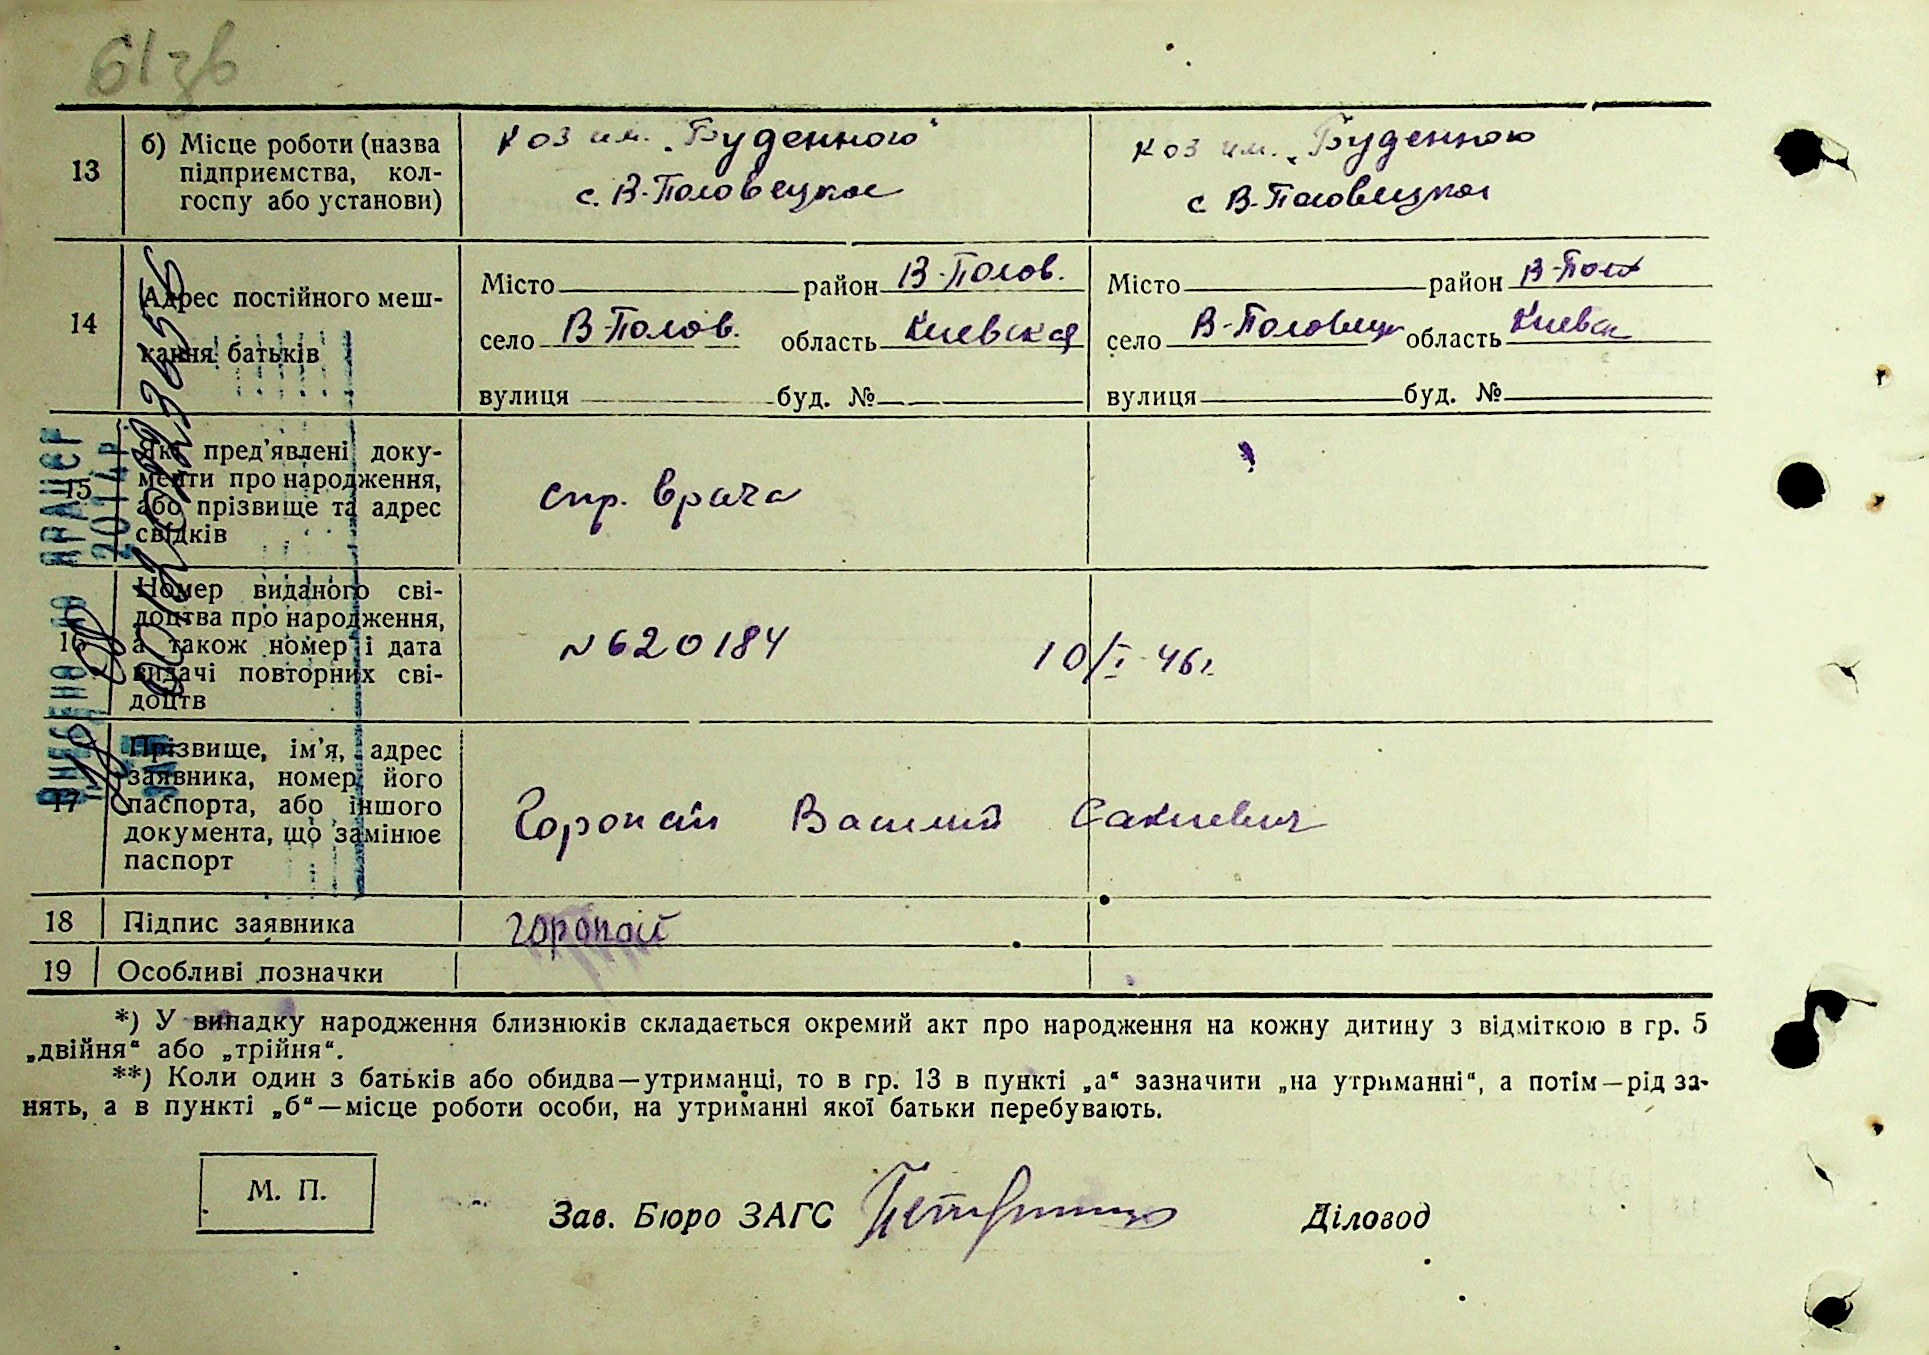 61зв
13
б) Місце роботи (назва
підприємства, кол-
госпу або установи)
коз им. „Буденного“
с. В-Половецкое
коз им. „Буденного
с В-Половецкое
14
Адрес постійного меш-
кання батьків
Місто район В-Полов.
село В-Полов. область Киевская
вулиця буд. №
Місто район В-Пол
село В-Половецк область Киевск
вулиця буд. №
15
Які пред'явлені доку-
менти про народження,
або прізвище та адрес
свідків
спр. врача
16
Номер виданого сві-
доцтва про народження,
а також номер і дата
видачі повторних сві-
доцтв
N 620184 10/I-46г.
17
Прізвище, ім'я, адрес
заявника, номер його
паспорта, або іншого
документа, що замінює
паспорт
Горопай Василий Сакиевич
18 Підпис заявника
Горопай
19 Особливі позначки
ВНЕСЕНО ДО ДРАЦСГ
201 р.
*) У випадку народження близнюків складається окремий акт про народження на кожну дитину з відміткою в гр. 5
„двійня“ або „трійня“.
**) Коли один з батьків або обидва—утриманці, то в гр. 13 в пункті „а“ зазначити „на утриманні“, а потім—рід за-
нять, а в пункті „б“—місце роботи особи, на утриманні якої батьки перебувають.
М. П.
Зав. Бюро ЗАГС
Діловод